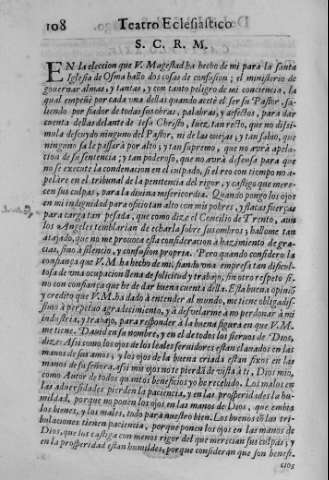 108 Teatro Eclesiástico
S. C. R. M.
EN la eleccion que V. Magestad ha hecho de mi para la santa
Iglesia de Osma hallo dos cosas de confusion; el ministerio de
governar almas, y tantas, y con tanto peligro de mi conciencia, la
qual empeñé por cada una dellas quando aceté el ser su Pastor, sa-
liendo por fiador de todas sus obras, palabras, y afectos, para dar
cuenta dellas delante de Iesu Christo, Iuez, tan reto, que no disi-
mula descuydo ninguno del Pastor, ni de las ovejas, y tan sabio, que
ninguno se le passarà por alto; y tan supremo, que no avrà apela-
cion de su sentencia; y tan poderoso, que no avrà defensa para que
no se execute la condenacion en el culpado, si el reo con tiempo no a-
pelàre en el tribunal de la penitencia del rigor, y castigo que mere-
cen sus culpas, para la divina misericordia. Quando pongo los ojos
en mi indignidad para oficio tan alto con mis pobres, y flacas fuerças
para carga tan pesada, que como dize el Concilio de Trento, aun
los Angeles temblarian de echarla sobre sus ombros; hallome tan
atajado, que no me provoca esta consideracion a hazimiento de gra-
cias, sino à silencio, y confusion propria. Pero quando considero la
confiança que V. M. ha hecho de mi, fiando una empresa tan dificul-
tosa de una ocupacion llena de solicitud y trabajo, sin otro respeto si-
no con confiança que he de dar buena cuenta della. Esta buena opinion
y credito que V. M. ha dado à entender al mundo, me tiene obligadis-
simo à perpetuo agradecimiento, y à desvelarme à no perdonar à mi
industria, y trabajo, para responder à la buena figura en que V. M.
me tiene. David en su nombre, y en el de todos los siervos de Dios,
dize: Assi como los ojos de los leales servidores estan clavados en las
manos de sus amos; y los ojos de la buena criada estan fixos en las
manos de su señora. Assi mis ojos no te pierdà de vista à ti, Dios mio,
como Autor de todos quantos beneficios yo he recebido. Los malos en
las adversidades pierden la paciencia, y en las prosperidades la hu-
mildad, porque no ponen los ojos en las manos de Dios, que embia
los bienes, y los males, todo para nuestro bien. Los buenos en las tri-
bulaciones tienen paciencia, porque ponen los ojos en las manos de
Dios, que los castiga con menos rigor del que merecian sus culpas; y
en la prosperidad estan humildes, porque consideran que son benefi-
cios